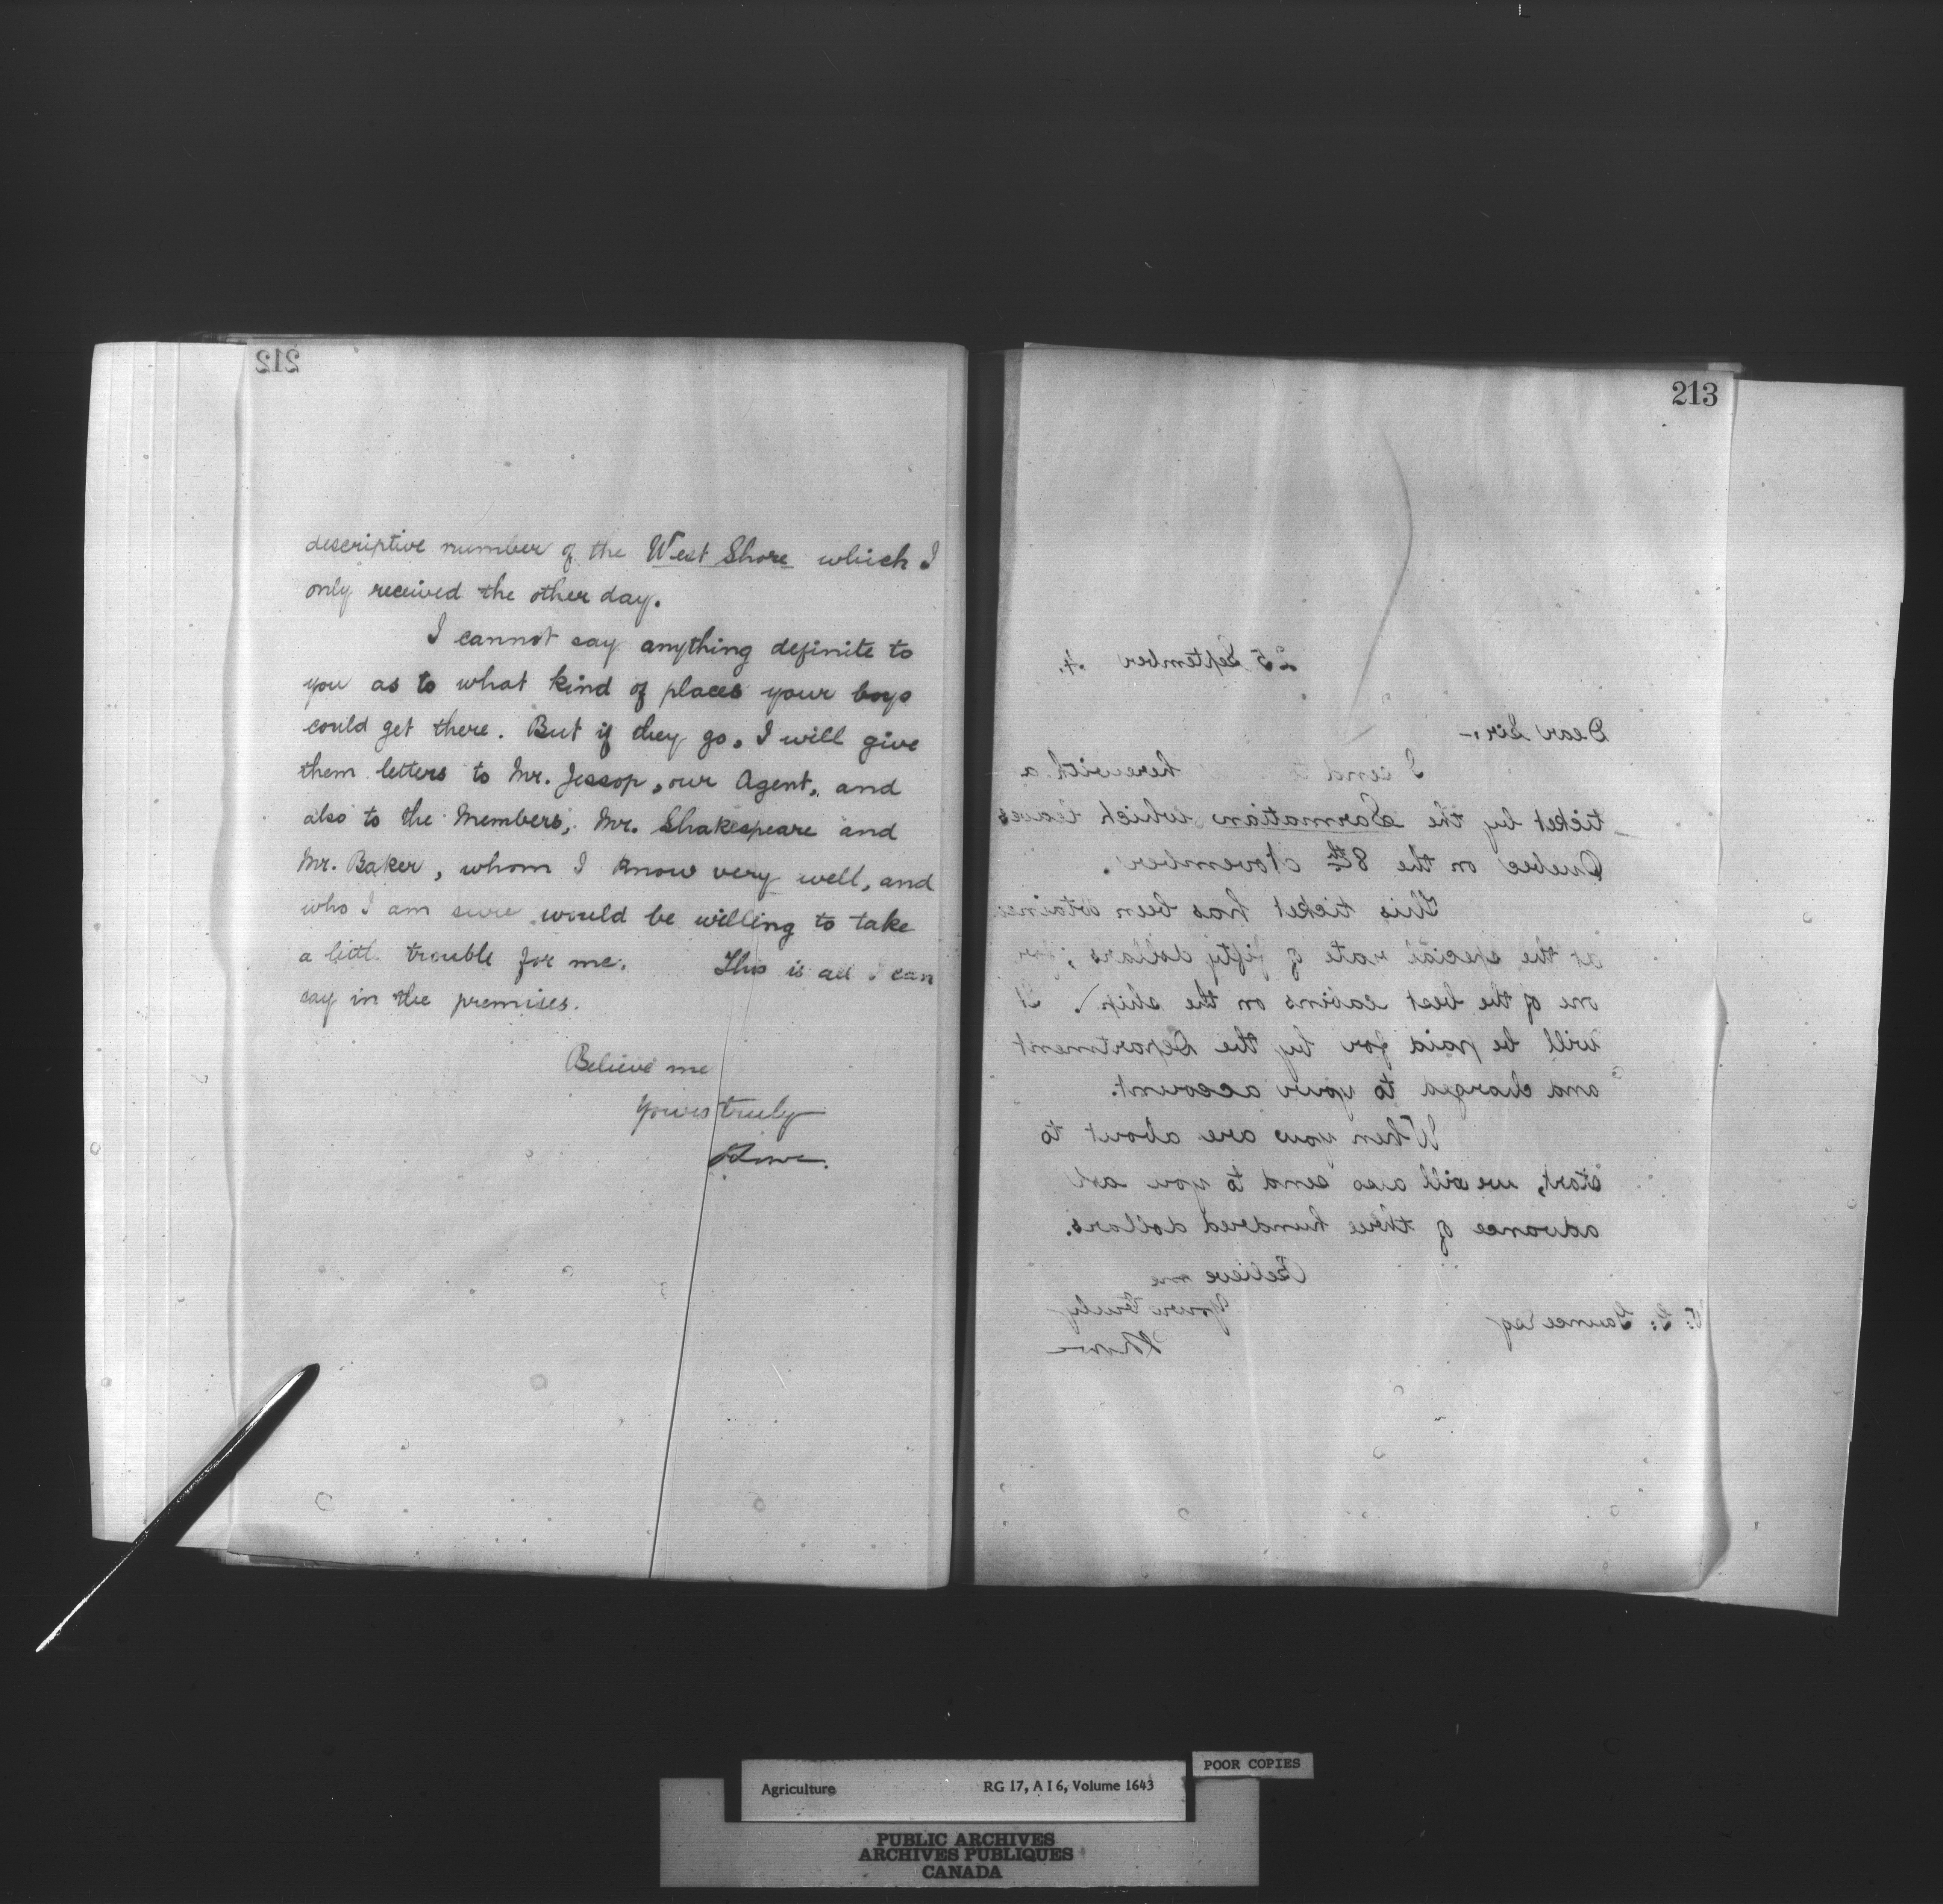 212
descriptive number of the West Shore which I
only received the other day.
I cannot say anything definite to
you as to what kind of places your boys
could get there. But if they go, I will give
them letters to Mr. Jessop, our Agent, and
also to the Members, Mr. Shakespeare and
Mr. Baker, whom I know very well, and
who I am sure would be willing to take
a little trouble for me. This is all I can
say in the premises.
Believe me
Yours truly
213
25 September 4.
Dear Sir,-
I send to herewith a
ticket by the Sarmatian which leaves
Quebec on the 8th November.
This ticket has been obtained
at the special rate of fifty dollars, for
one of the best cabins on the ship. It
will be paid for by the Department
and charged to your account.
When you are about to
start, we will also send to you an
advance of three hundred dollars.
Believe me
Yours truly
Esq
POOR COPIES
Agriculture RG 17, A I 6, Volume 1643
PUBLIC ARCHIVES
ARCHIVES PUBLIQUES
CANADA